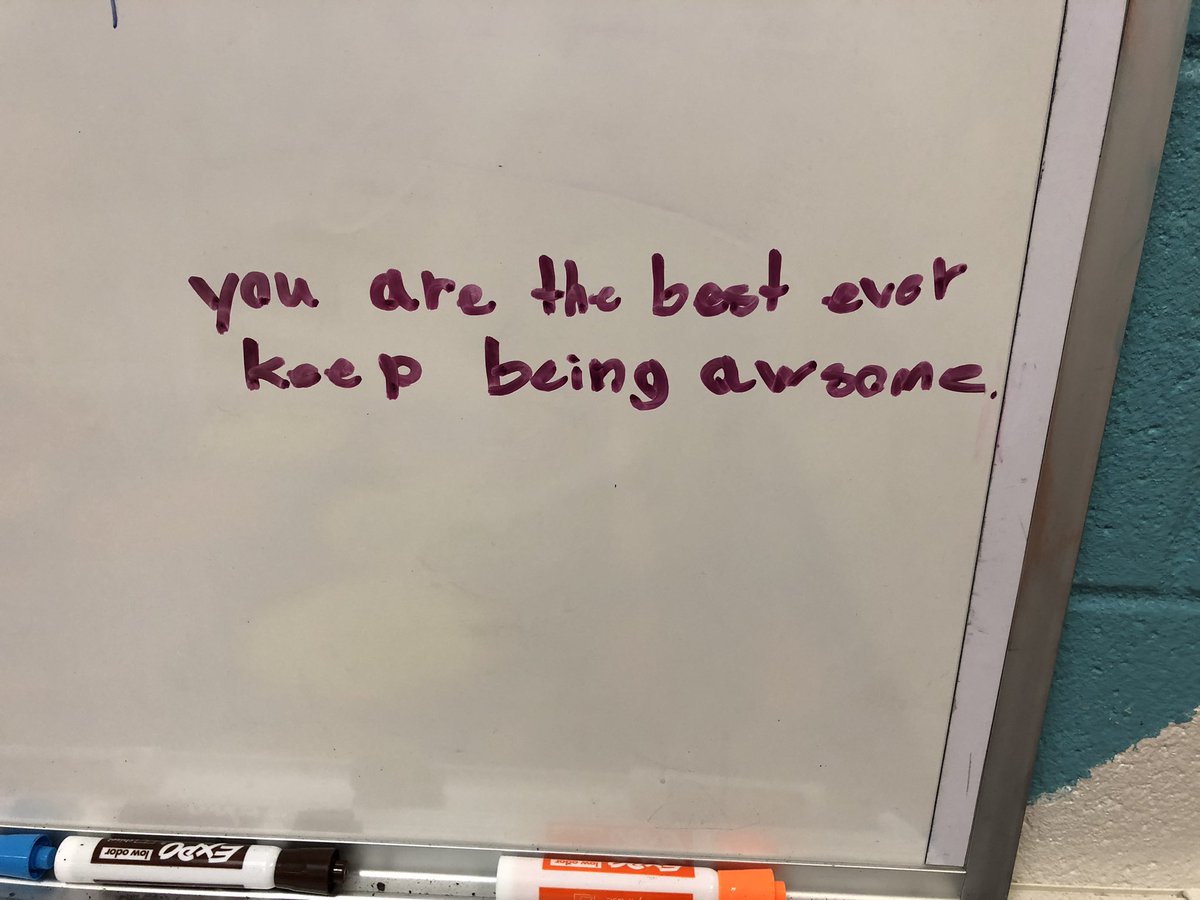 you are the best ever
keep being awsome.
EXPO low odor
EXPO low odor